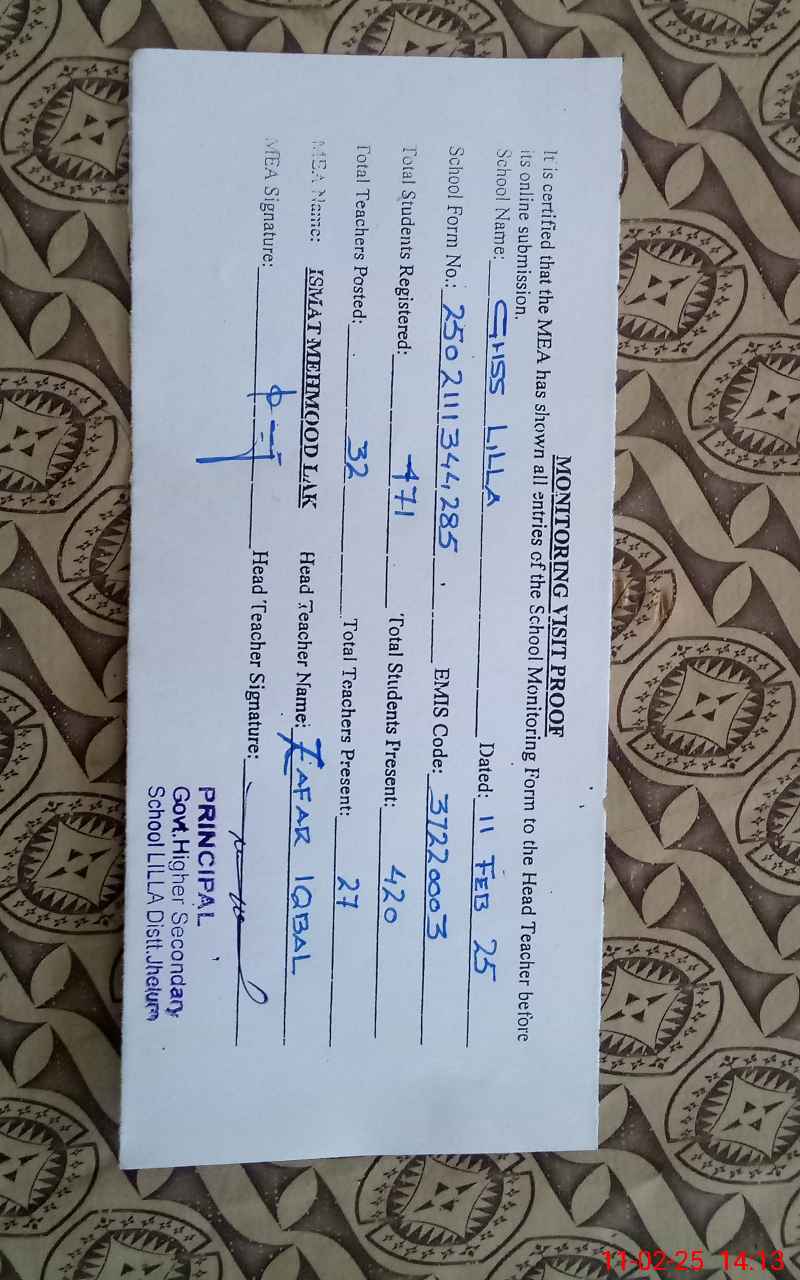 MONITORING VISIT PROOF
It is certified that the MEA has shown all entries of the School Monitoring Form to the Head Teacher before
its online submission.
School Name: GHSS LILLA Dated: 11 FEB 25
School Form No.: 2502111344285 EMIS Code: 37220003
Total Students Registered: 471 Total Students Present: 420
Total Teachers Posted: 32 Total Teachers Present: 27
MEA Name: ISMAT MEHMOOD LAK Head Teacher Name: ZAFAR IQBAL
MEA Signature: Head Teacher Signature:
PRINCIPAL
Govt. Higher Secondary
School LILLA Distt. Jhelum
11-02-25 14:13